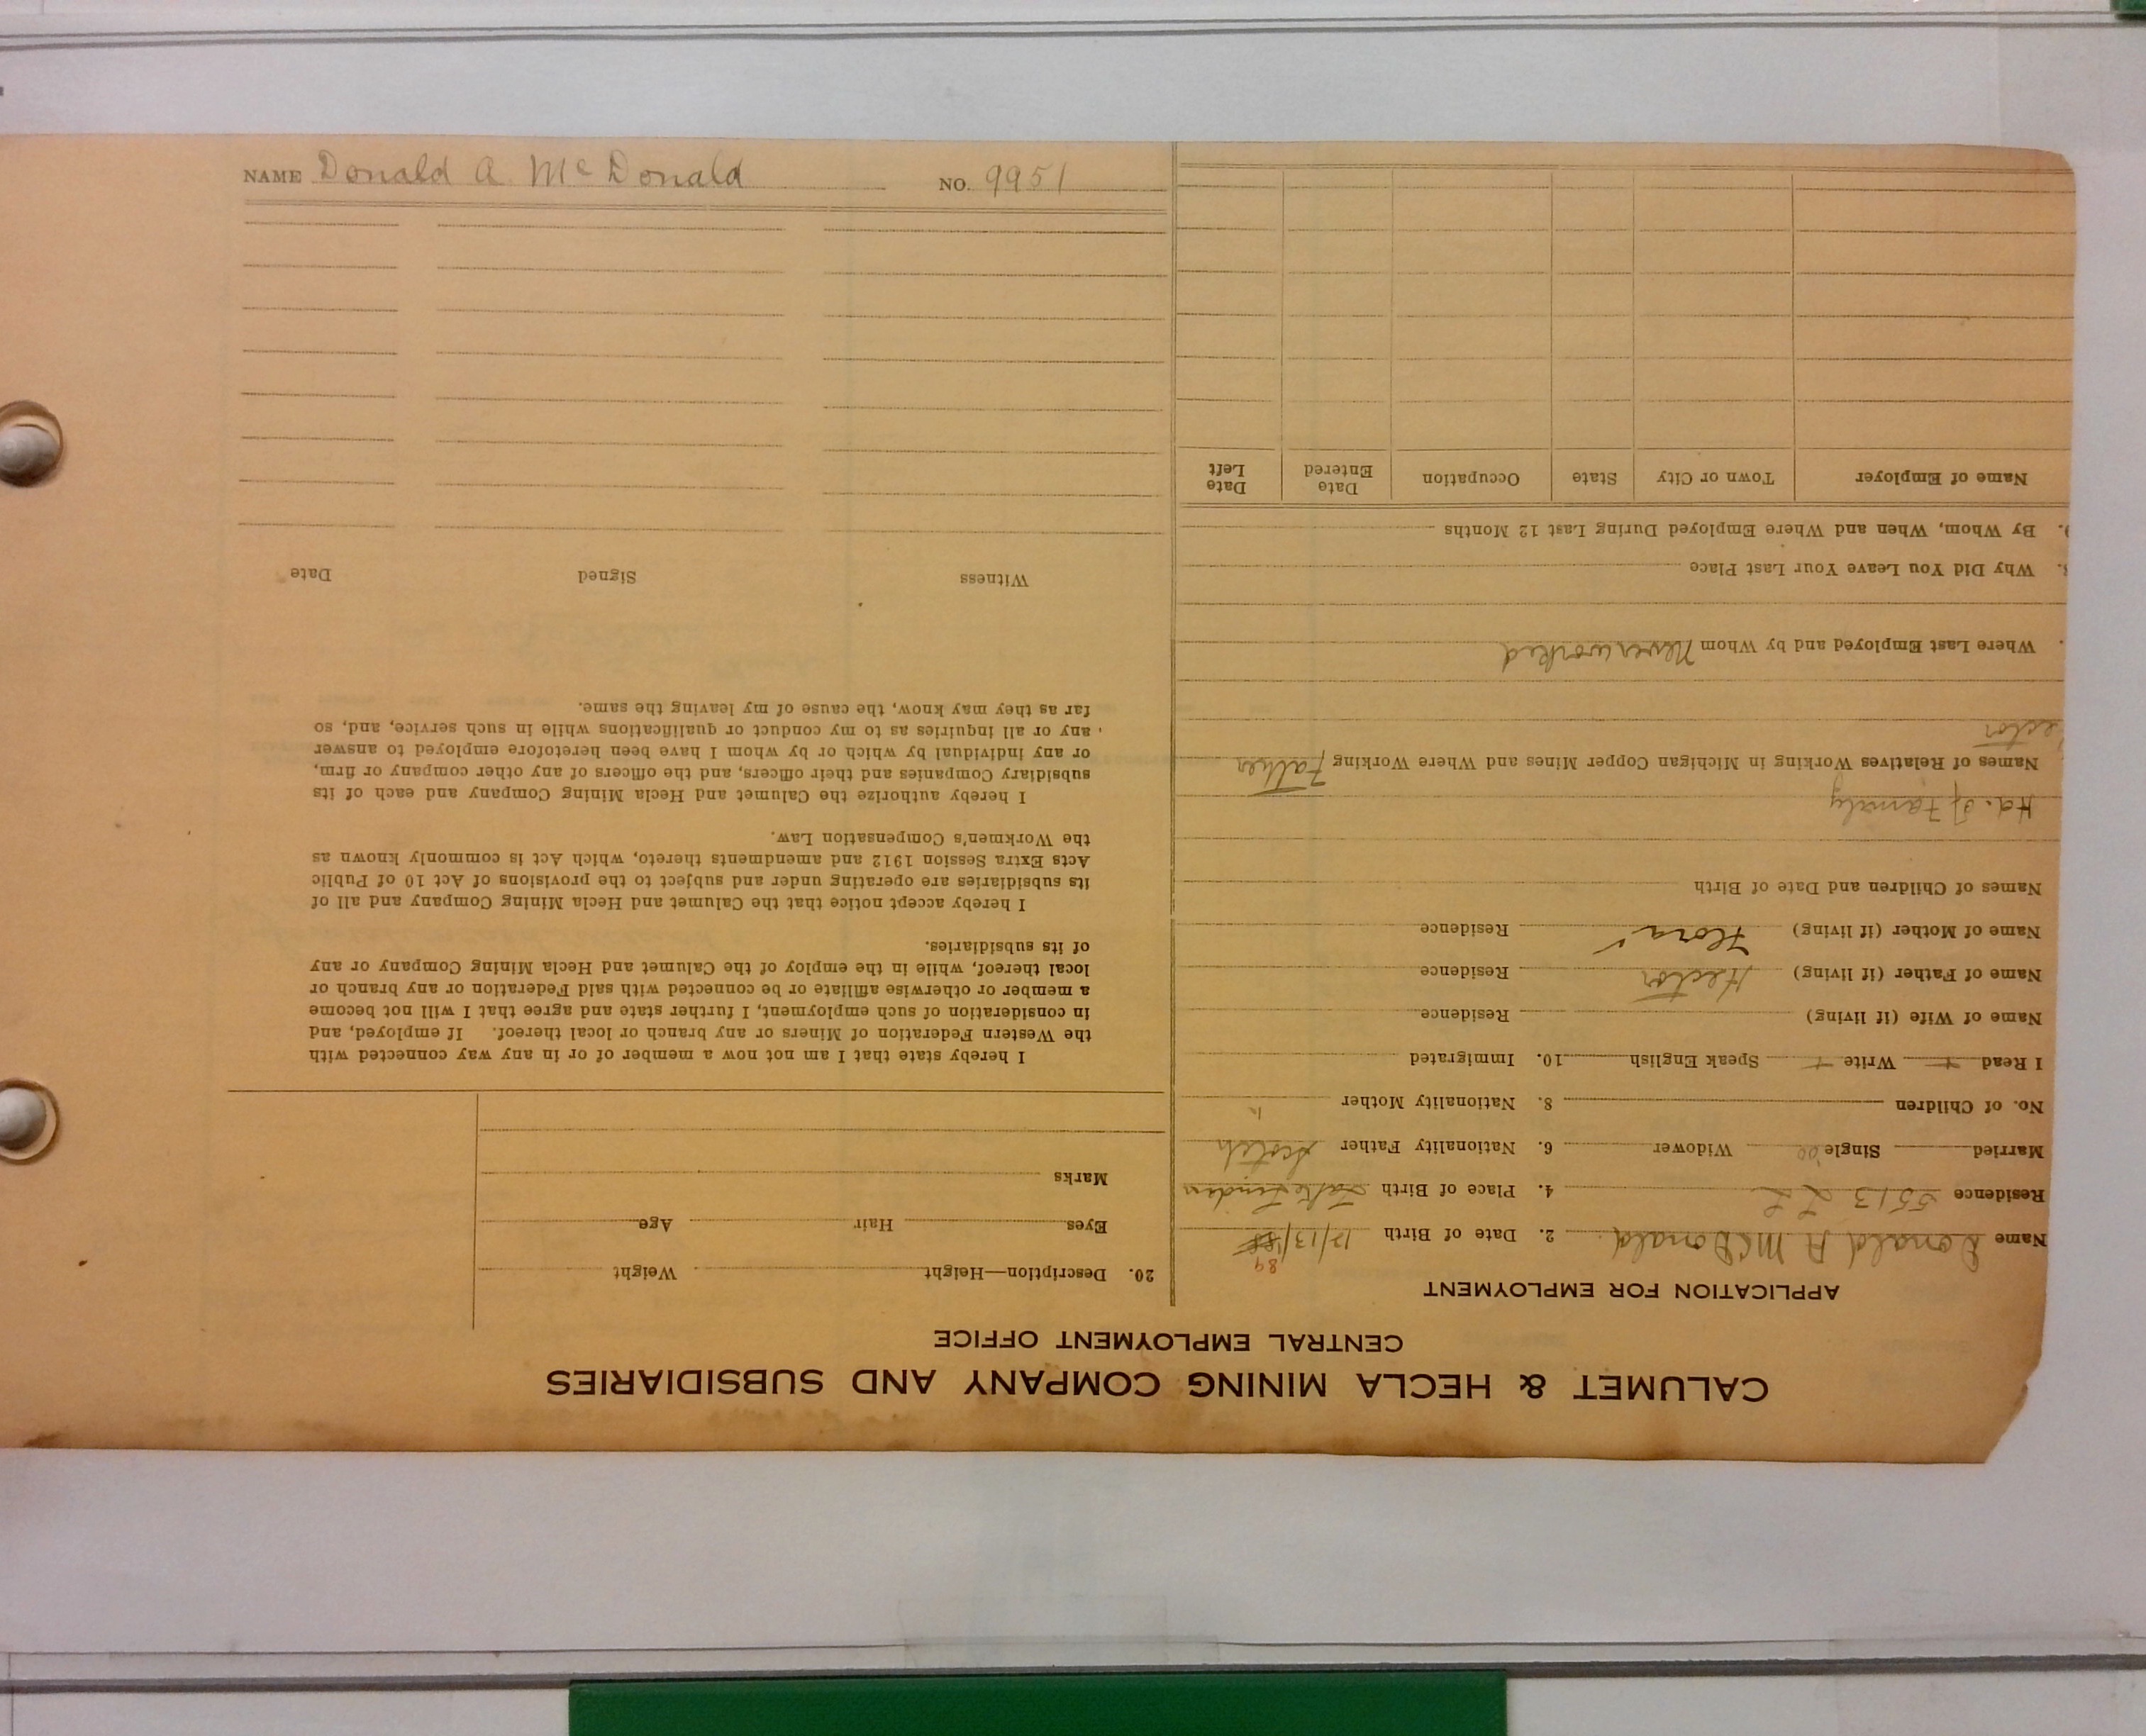 NAME Donald A. McDonald NO. 9951
CALUMET & HECLA MINING COMPANY AND SUBSIDIARIES
CENTRAL EMPLOYMENT OFFICE
APPLICATION FOR EMPLOYMENT
Name Donald A McDonald 2. Date of Birth 12/13/88 89
Residence 5513 L L 4. Place of Birth Lake Linden
Married Single Widower 6. Nationality Father Scotch
No. of Children 8. Nationality Mother "
I Read + Write + Speak English 10. Immigrated
Name of Wife (if living) Residence
Name of Father (if living) Hector Residence
Name of Mother (if living) Flora Residence
Names of Children and Date of Birth
Hd. of Family
Names of Relatives Working in Michigan Copper Mines and Where Working Father
ector
Where Last Employed and by Whom Never worked
Why Did You Leave Your Last Place
By Whom, When and Where Employed During Last 12 Months
Name of Employer Town or City State Occupation Date Entered Date Left
20. Description—Height Weight
Eyes Hair Age
Marks
I hereby state that I am not now a member of or in any way connected with
the Western Federation of Miners or any branch or local thereof. If employed, and
in consideration of such employment, I further state and agree that I will not become
a member or otherwise affiliate or be connected with said Federation or any branch or
local thereof, while in the employ of the Calumet and Hecla Mining Company or any
of its subsidiaries.
I hereby accept notice that the Calumet and Hecla Mining Company and all of
its subsidiaries are operating under and subject to the provisions of Act 10 of Public
Acts Extra Session 1912 and amendments thereto, which Act is commonly known as
the Workmen's Compensation Law.
I hereby authorize the Calumet and Hecla Mining Company and each of its
subsidiary Companies and their officers, and the officers of any other company or firm,
or any individual by which or by whom I have been heretofore employed to answer
any or all inquiries as to my conduct or qualifications while in such service, and, so
far as they may know, the cause of my leaving the same.
Witness Signed Date